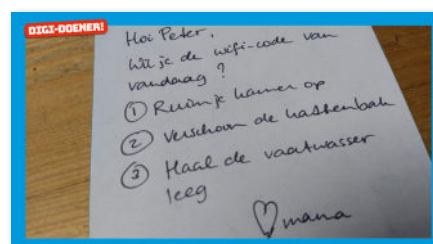 DIGI-DOENER!
Hoi Peter,
Wil je de wifi-code van
vandaag?
① Ruim je kamer op
② Verschoon de kattenbak
③ Haal de vaatwasser
leeg
♡ mama